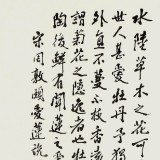 水陸草木之花可
世人甚愛牡丹予獨
外直不蔓不枝香
謂菊花之隱逸者也牡
陶後鮮有聞蓮之愛
宋周敦頤愛蓮說